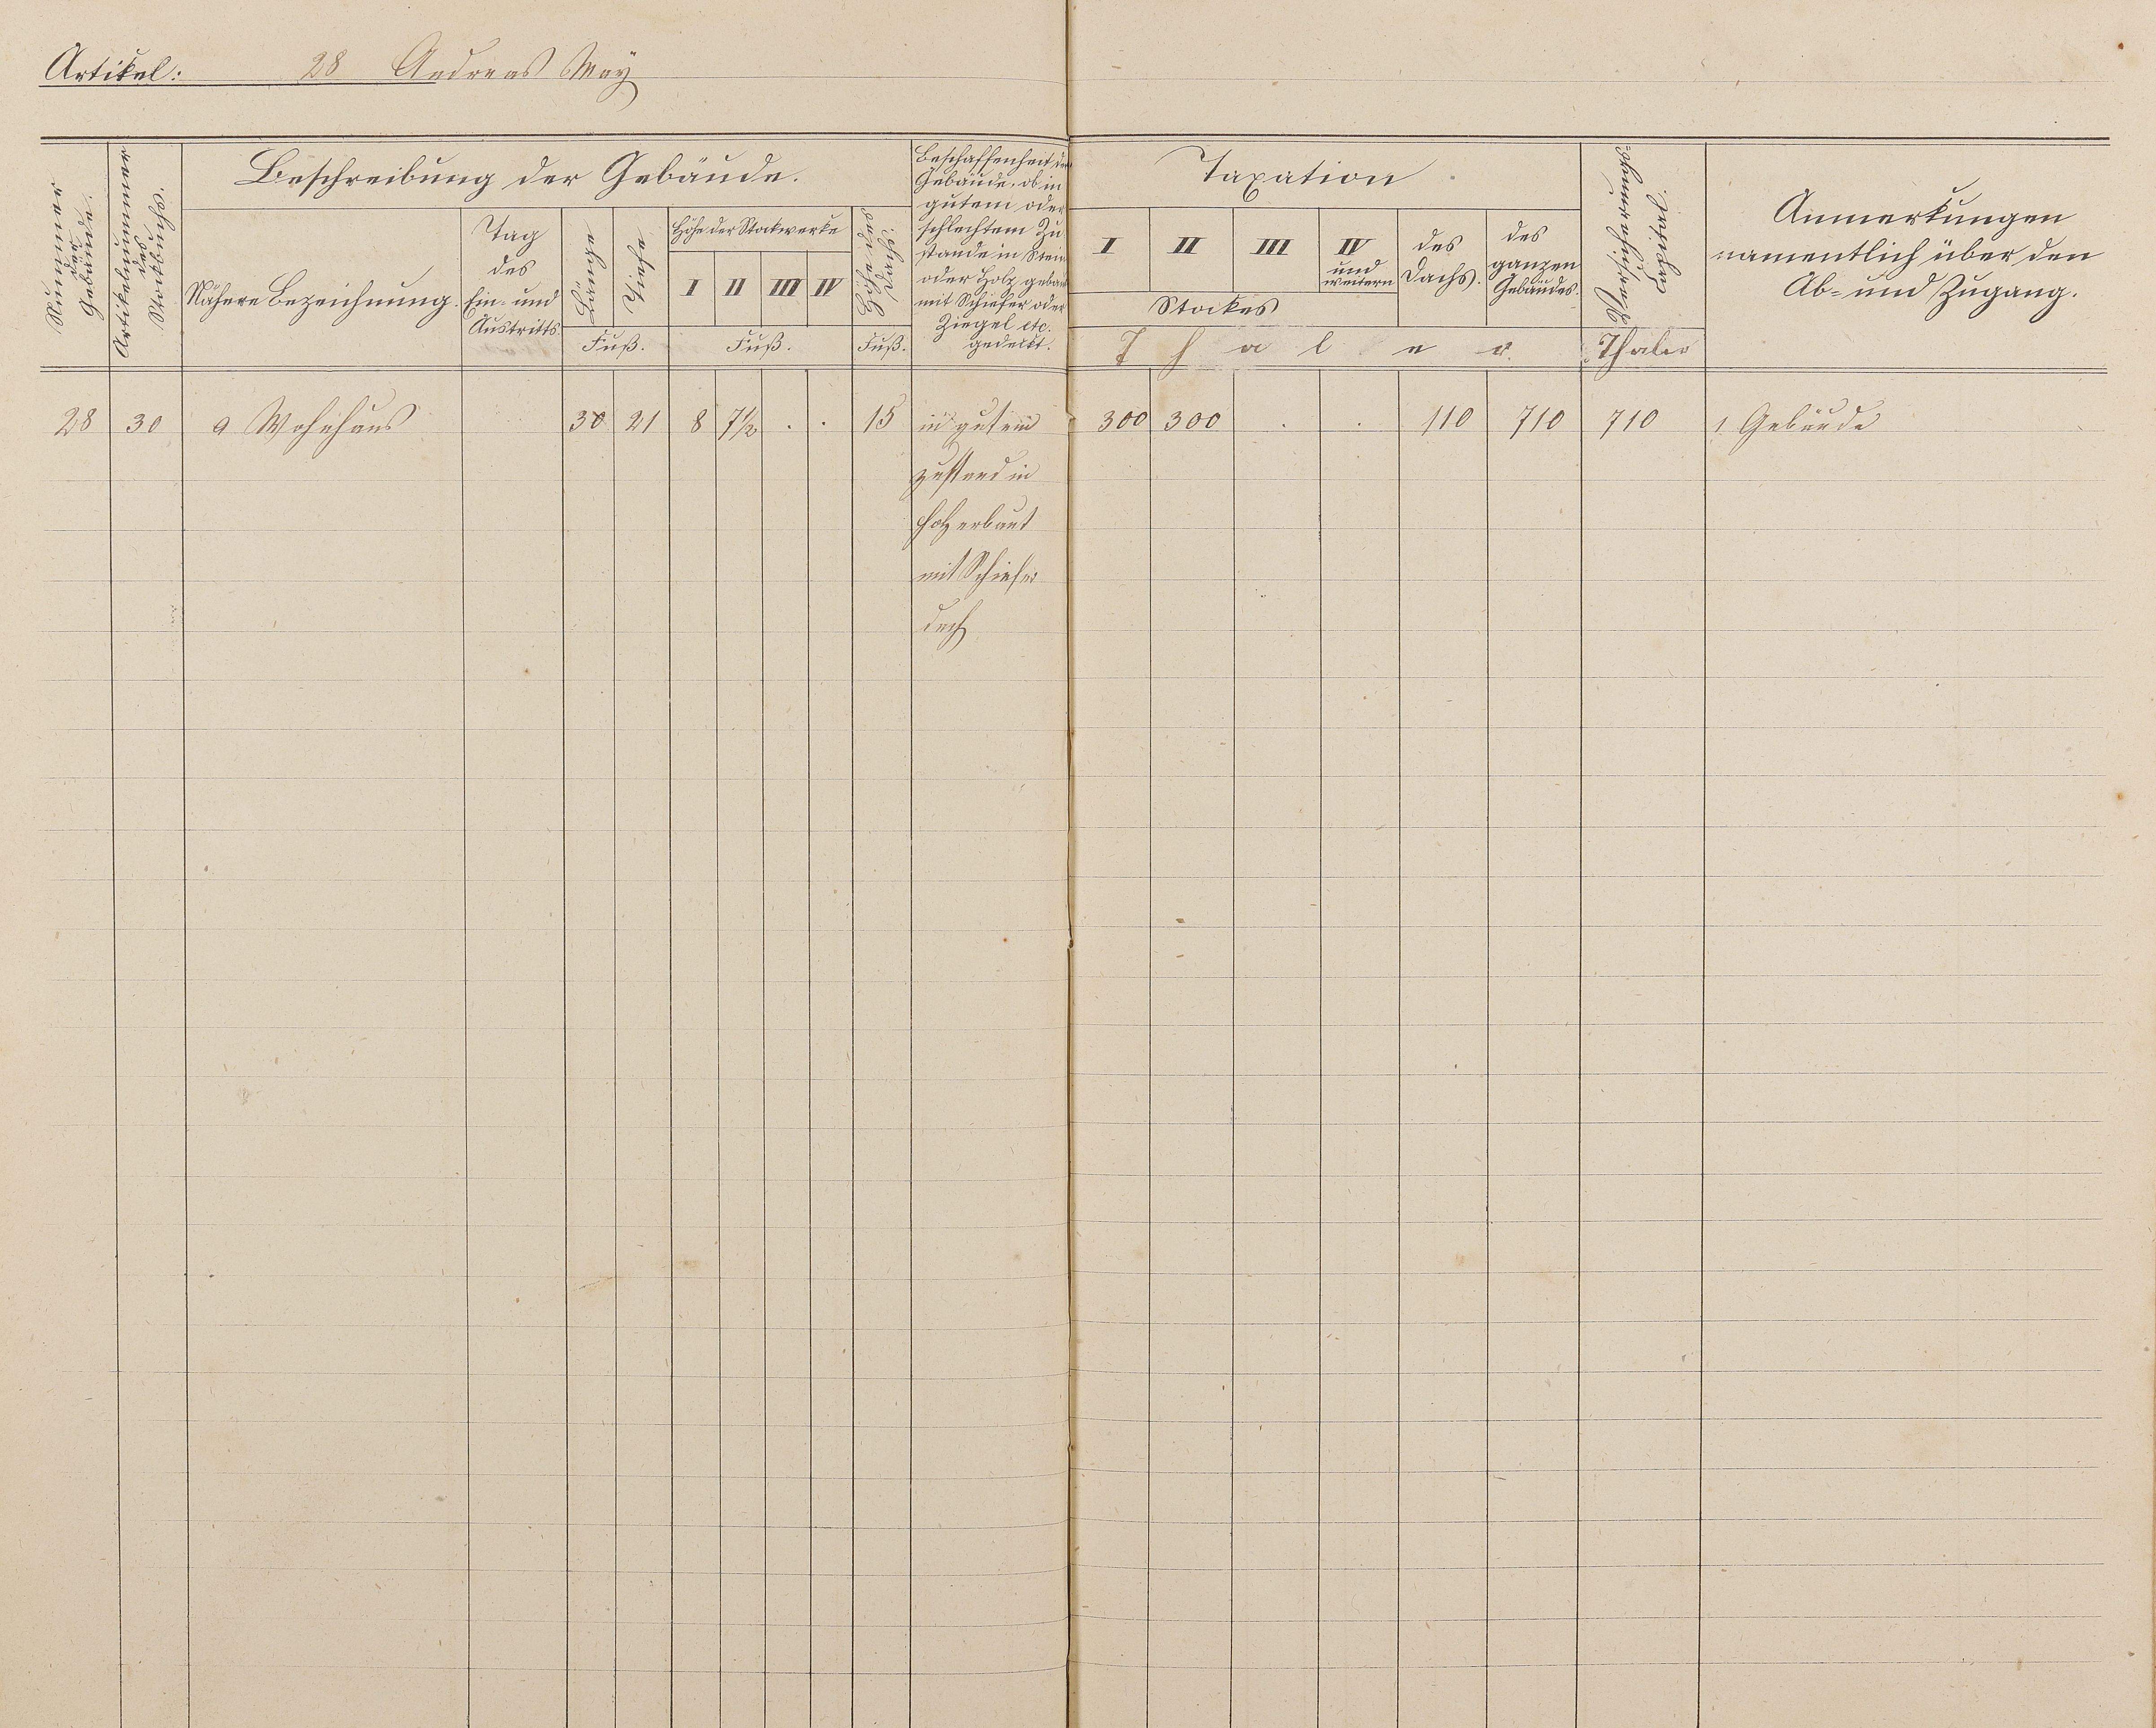 Artikel: 28 Andreas May
Nummer der Gebäude.
Artikelnummer des Stockbuchs.
Beschreibung der Gebäude.
Nähere Bezeichnung.
Tag des Ein- und Austritts
Länge
Tiefe
Fuß.
Höhe der Stockwerke
I II III IV
Fuß.
Höhe des Dachs.
Fuß.
Beschaffenheit der
Gebäude, ob in
gutem oder
schlechtem Zu
stande in Stein
oder Holz gebaut
mit Schiefer oder
Ziegel etc.
gedeckt.
Taxation
I II III IV und weitern
Stockes
des Dachs.
des ganzen Gebäudes.
Thaler
Thaler
Anmerkungen
namentlich über den
Ab- und Zugang.
28 30 a Wohnhaus 30 21 8 7½ . . 15 in gutem 300 300 . . 110 710 710 1 Gebäude
zustand in
holz erbaut
mit Schiefer
dach